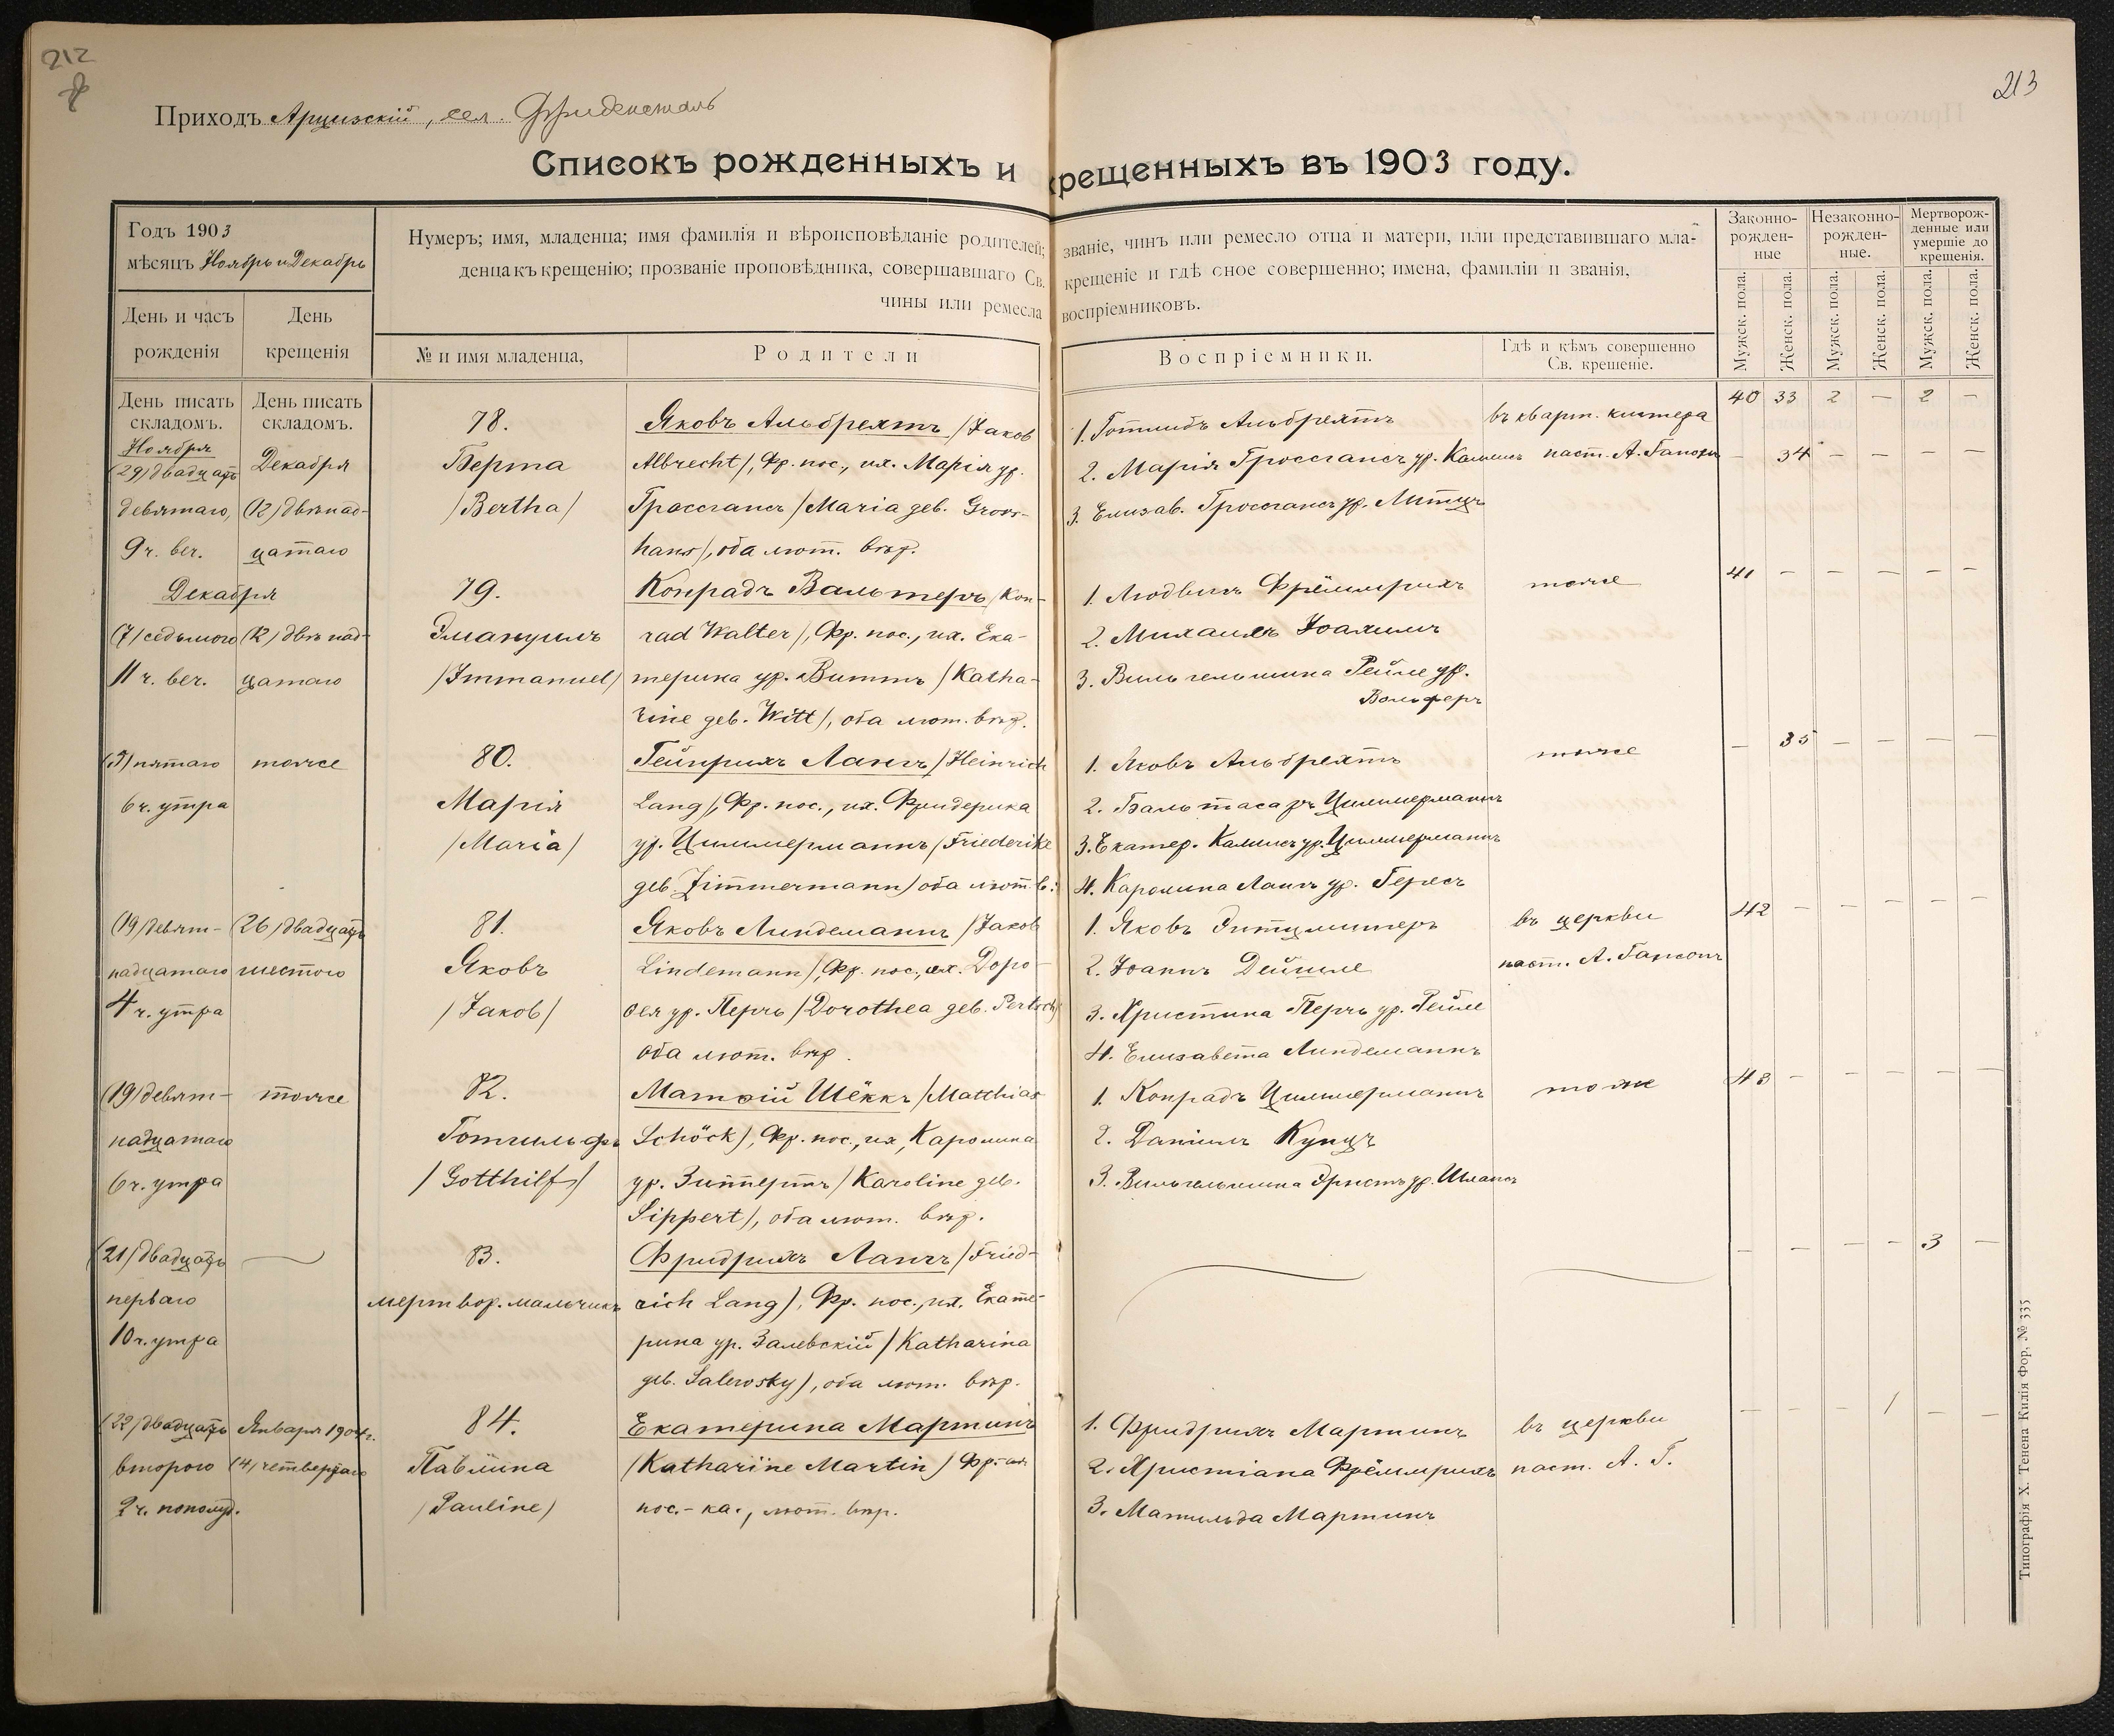 212
213
Приходъ Арцизскій, сел. Фриденсталь
Списокъ рожденныхъ и крещенныхъ въ 1903 году.
Годъ 1903
мѣсяцъ Ноябрь и Декабрь
День и часъ рожденія
День крещенія
Нумеръ; имя, младенца; имя фамилія и вѣроисповѣданіе родителей; званіе, чинъ или ремесло отца и матери, или представившаго мла-
денца къ крещенію; прозваніе проповѣдника, совершавшаго Св. крещеніе и гдѣ оное совершенно; имена, фамиліи и званія,
чины или ремесла воспріемниковъ.
№ и имя младенца,
Родители
Воспріемники.
Гдѣ и кѣмъ совершенно
Св. крещеніе.
Законно-
рожден-
ные
Незаконно-
рожден-
ные.
Мертворож-
денные или
умершіе до
крещенія.
Мужск. пола.
Женск. пола.
Мужск. пола.
Женск. пола.
Мужск. пола.
Женск. пола.
День писать
складомъ.
День писать
складомъ.
40 33 2 — 2 —
Ноября
(29) двадцать
девятаго,
9 ч. веч.
Декабря
(12) двѣнад-
цатаго
78.
Берта
/Bertha/
Яковъ Альбрехтъ /Jakob
Albrecht/, Фр. пос., их. Марія ур.
Гроссгансъ /Maria geb. Gross-
hans/, оба лют. вѣр.
1. Готлибъ Альбрехтъ
2. Марія Гроссгансъ ур.
3. Елизав. Гроссгансъ ур.
въ кварт. кистера
паст. А. Гансонъ
— 34 — — — —
Декабря
(7) седьмого
11 ч. веч.
(12) двѣнад-
цатаго
79.
Эмануилъ
/Immanuel/
Конрадъ Вальтеръ /Kon-
rad Walter/, Фр. пос., их. Ека-
терина ур. Виттъ /Katha-
rine geb. Witt/, оба лют. вѣр.
1. Людвигъ Фрёммрихъ
2. Михаилъ Іоахимъ
3. Вильгельмина Рейле ур.
Вольферъ
тоже
41 — — — — —
(5) пятаго
6 ч. утра
тоже
80.
Марія
/Maria/
Гейнрихъ Лангъ /Heinrich
Lang/, Фр. пос., их. Фридерика
ур. Циммерманнъ /Friederike
geb. Zimmermann/ оба лют. в.
1. Яковъ Альбрехтъ
2. Бальтасаръ Циммерманнъ
3. Екатер. ур. Циммерманнъ
4. Каролина Лангъ ур.
тоже
— 35 — — — —
(19) девят-
надцатаго
4 ч. утра
(26) двадцать
шестого
81.
Яковъ
/Jakob/
Яковъ Линдеманнъ /Jakob
Lindemann/, Фр. пос., их. Доро-
ѳея ур. Перчъ /Dorothea geb. Pertsch/
оба лют. вѣр.
1. Яковъ
2. Іоаннъ
3. Христина Перчъ ур. Рейле
4. Елизавета Линдеманнъ
въ церкви
паст. А. Гансонъ
42 — — — — —
(19) девят-
надцатаго
6 ч. утра
тоже
82.
Готгильфъ
/Gotthilf/
Матѳій Шёккъ /Matthias
Schöck/, Фр. пос., их, Каролина
ур. Зиппертъ /Karoline geb.
Sippert/, оба лют. вѣр.
1. Конрадъ Циммерманнъ
2. Даніилъ Кунцъ
3. Вильгельмина Эрнстъ ур.
тоже
43 — — — — —
(21) двадцать
перваго
10 ч. утра
—
83.
мертвор. мальчикъ
Фридрихъ Лангъ /Fried-
rich Lang/, Фр. пос., их. Екате-
рина ур. Залевскій /Katharina
geb. Salewsky/, оба лют. вѣр.
— — — — 3 —
(22) двадцать
второго
2 ч. пополуд.
Января 1904 г.
(4) четвертаго
84.
Павлина
/Pauline/
Екатерина Мартинъ
/Katharine Martin/ Фр-ая
пос.-ка., лют. вѣр.
1. Фридрихъ Мартинъ
2. Христіана Фрёммрихъ
3. Матильда Мартинъ
въ церкви
паст. А. Г.
— — — 1 — —
Типографія Х. Тенена Килія Фор. № 335